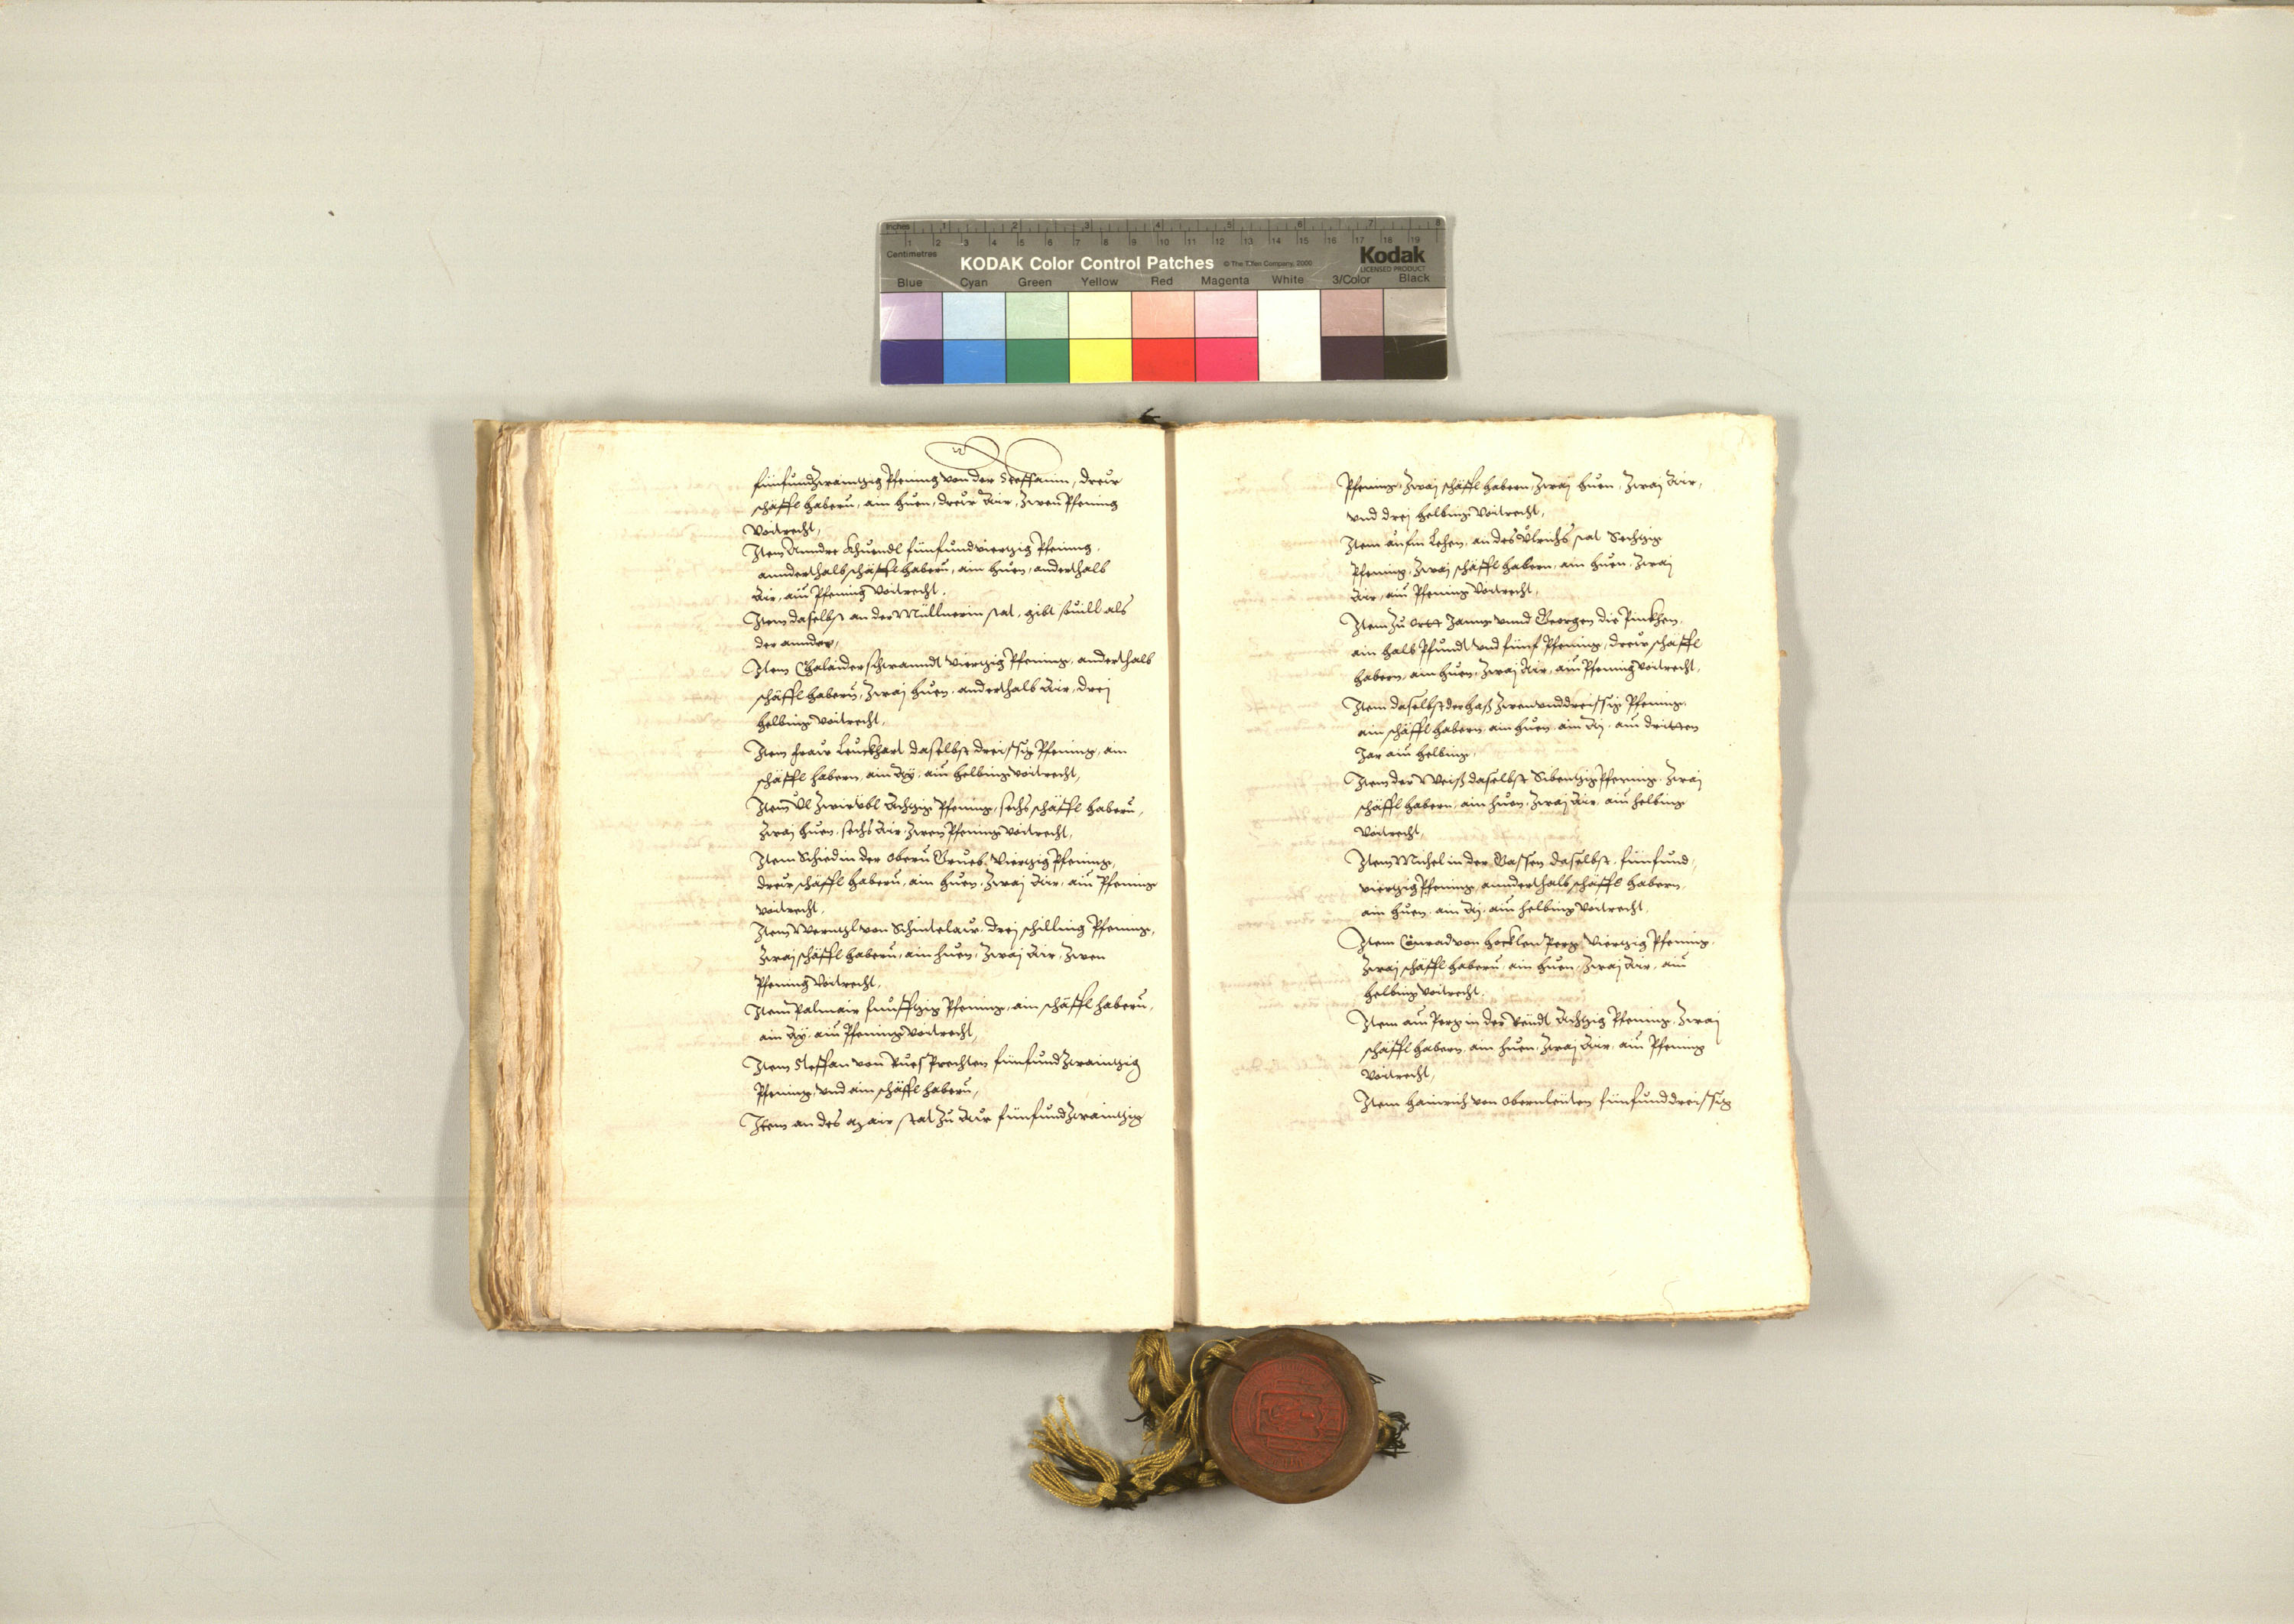 Inches 1 2 3 4 5 6 7 8
Centimetres 1 2 3 4 5 6 7 8 9 10 11 12 13 14 15 16 17 18 19
KODAK Color Control Patches © The Tiffen Company, 2000 Kodak
LICENSED PRODUCT
Blue Cyan Green Yellow Red Magenta White 3/Color Black
fünfundzwaintzig Pfening von der Steffanin, dreur
schäffl habern, ain huen, dreur Air, zwen Pfening
Voitrecht,
Item Anndre Khuendl fünfundviertzig Pfening,
annderthalb schäffl habern, ain huen, anderthalb
Air, ain Pfening Voitrecht,
Item daselbst an der Müllnerin stat, gibt souill als
der annder,
Item viertzig Pfening, anderthalb
schäffl habern, zwaj huen, anderthalb Air, drej
helbing voitrecht,
Item fraw Leuckhart daselbst dreissig Pfening, ain
schäffl habern, ain Ay, ain helbing voitrecht,
Item Ul Zwirübl Achtzig Pfening, sechs schäffl habern,
zwaj huen, sechs Air, zwen Pfening voitrecht,
Item Schied in der Obern Grueb, Viertzig Pfening,
dreur schäffl habern, ain huen, zwaj Air, ain Pfening
voitrecht,
Item Werntzl von Schintelaur, drej schilling Pfening,
zwaj schäffl habern, ain huen, zwaj Air, zwen
Pfening Voitrecht,
Item Palmair funfftzig Pfening, ain schäffl habern,
ain Ay, ain Pfening voitrecht,
Item Steffan von Ruesprechten fünfundzwaintzig
Pfening, und ain schäffl habern,
Item an des stat zu Aur fünfundzwaintzig
Pfening, zwaj schäffl habern, zwaj huen, zwaj Air,
und drej helbing Voitrecht,
Item aufm Lehen, an des Ulrichs stat Sechtzig
Pfening, zwaj schäffl habern, ain huen, zwaj
Air, ain Pfening Voitrecht,
Item zu Ortt Janns unnd Georgen die Pinkhen,
ain halb Pfundt und fünf Pfening, dreur schäffl
habern, ain huen, zwaj Air, ain Pfening voitrecht,
Item daselbst der haß zwenunddreissig Pfening,
ain schäffl habern, ain huen, ain Aj, am dritten
Jar ain helbing,
Item der Weiß daselbst Sibentzig Pfening, zwaj
schäffl habern, ain huen, zwaj Air, ain helbing
Voitrecht,
Item Michel in der Gassen daselbst, fünfund,
viertzig Pfening, annderthalb schäffl habern,
ain huen, ain Aj, ain helbing Voitrecht,
Item Conrad von Perg Viertzig Pfening,
zwaj schäffl habern, ain huen, zwaj Air, ain
helbing voitrecht,
Item am Perg in der Achtzig Pfening, zwaj
schäffl habern, ain huen, zwaj Air, ain Pfening
Voitrecht,
Item Hainrich von Obernleüten fünfunddreissig